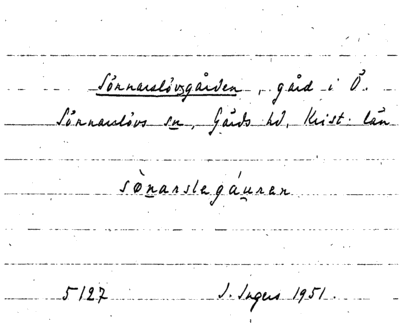 Sönnarslövsgården, gård i Ö.
Sönnarslövs sn, Gärds hd, Krist. län
sònarslegáuren
5127 I. Ingers 1951.